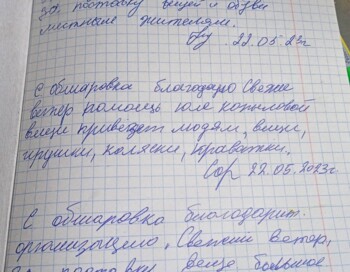 за поставку вещей и обуви
местным жителям.
22.05.23г
С обшаровка благодарю Свеже
ветер помощь юле копыловой
вещи привезт людям, вещи,
игрушки, коляски, кроватки.
Сор 22.05.2023г.
С обшаровка благодарит
организацию, Свежий Ветер,
за поставку вещи большое